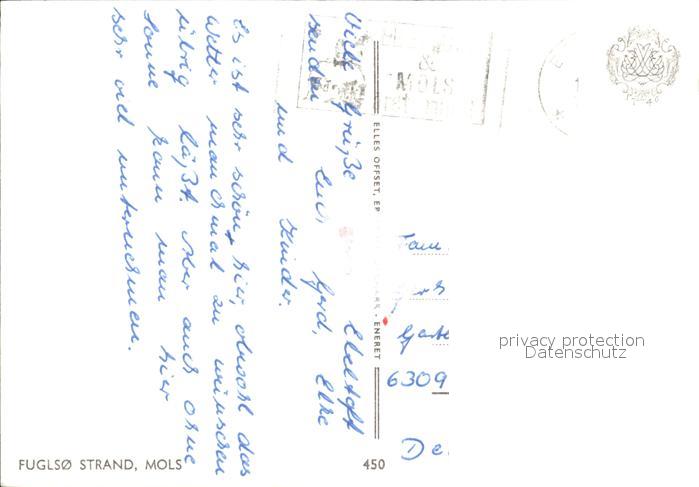 Viele Grüße Ebeltoft
senden Euch Gerd, Elke
und Kinder.
Es ist sehr schön hier, obwohl das
Wetter manchmal zu wünschen
übrig läßt. Aber auch ohne
Sonne kann man hier
sehr viel unternehmen.
&
MOLS
ELLES OFFSET, EP
ENERET
Fam
6309
De
privacy protection
Datenschutz
FUGLSØ STRAND, MOLS
450